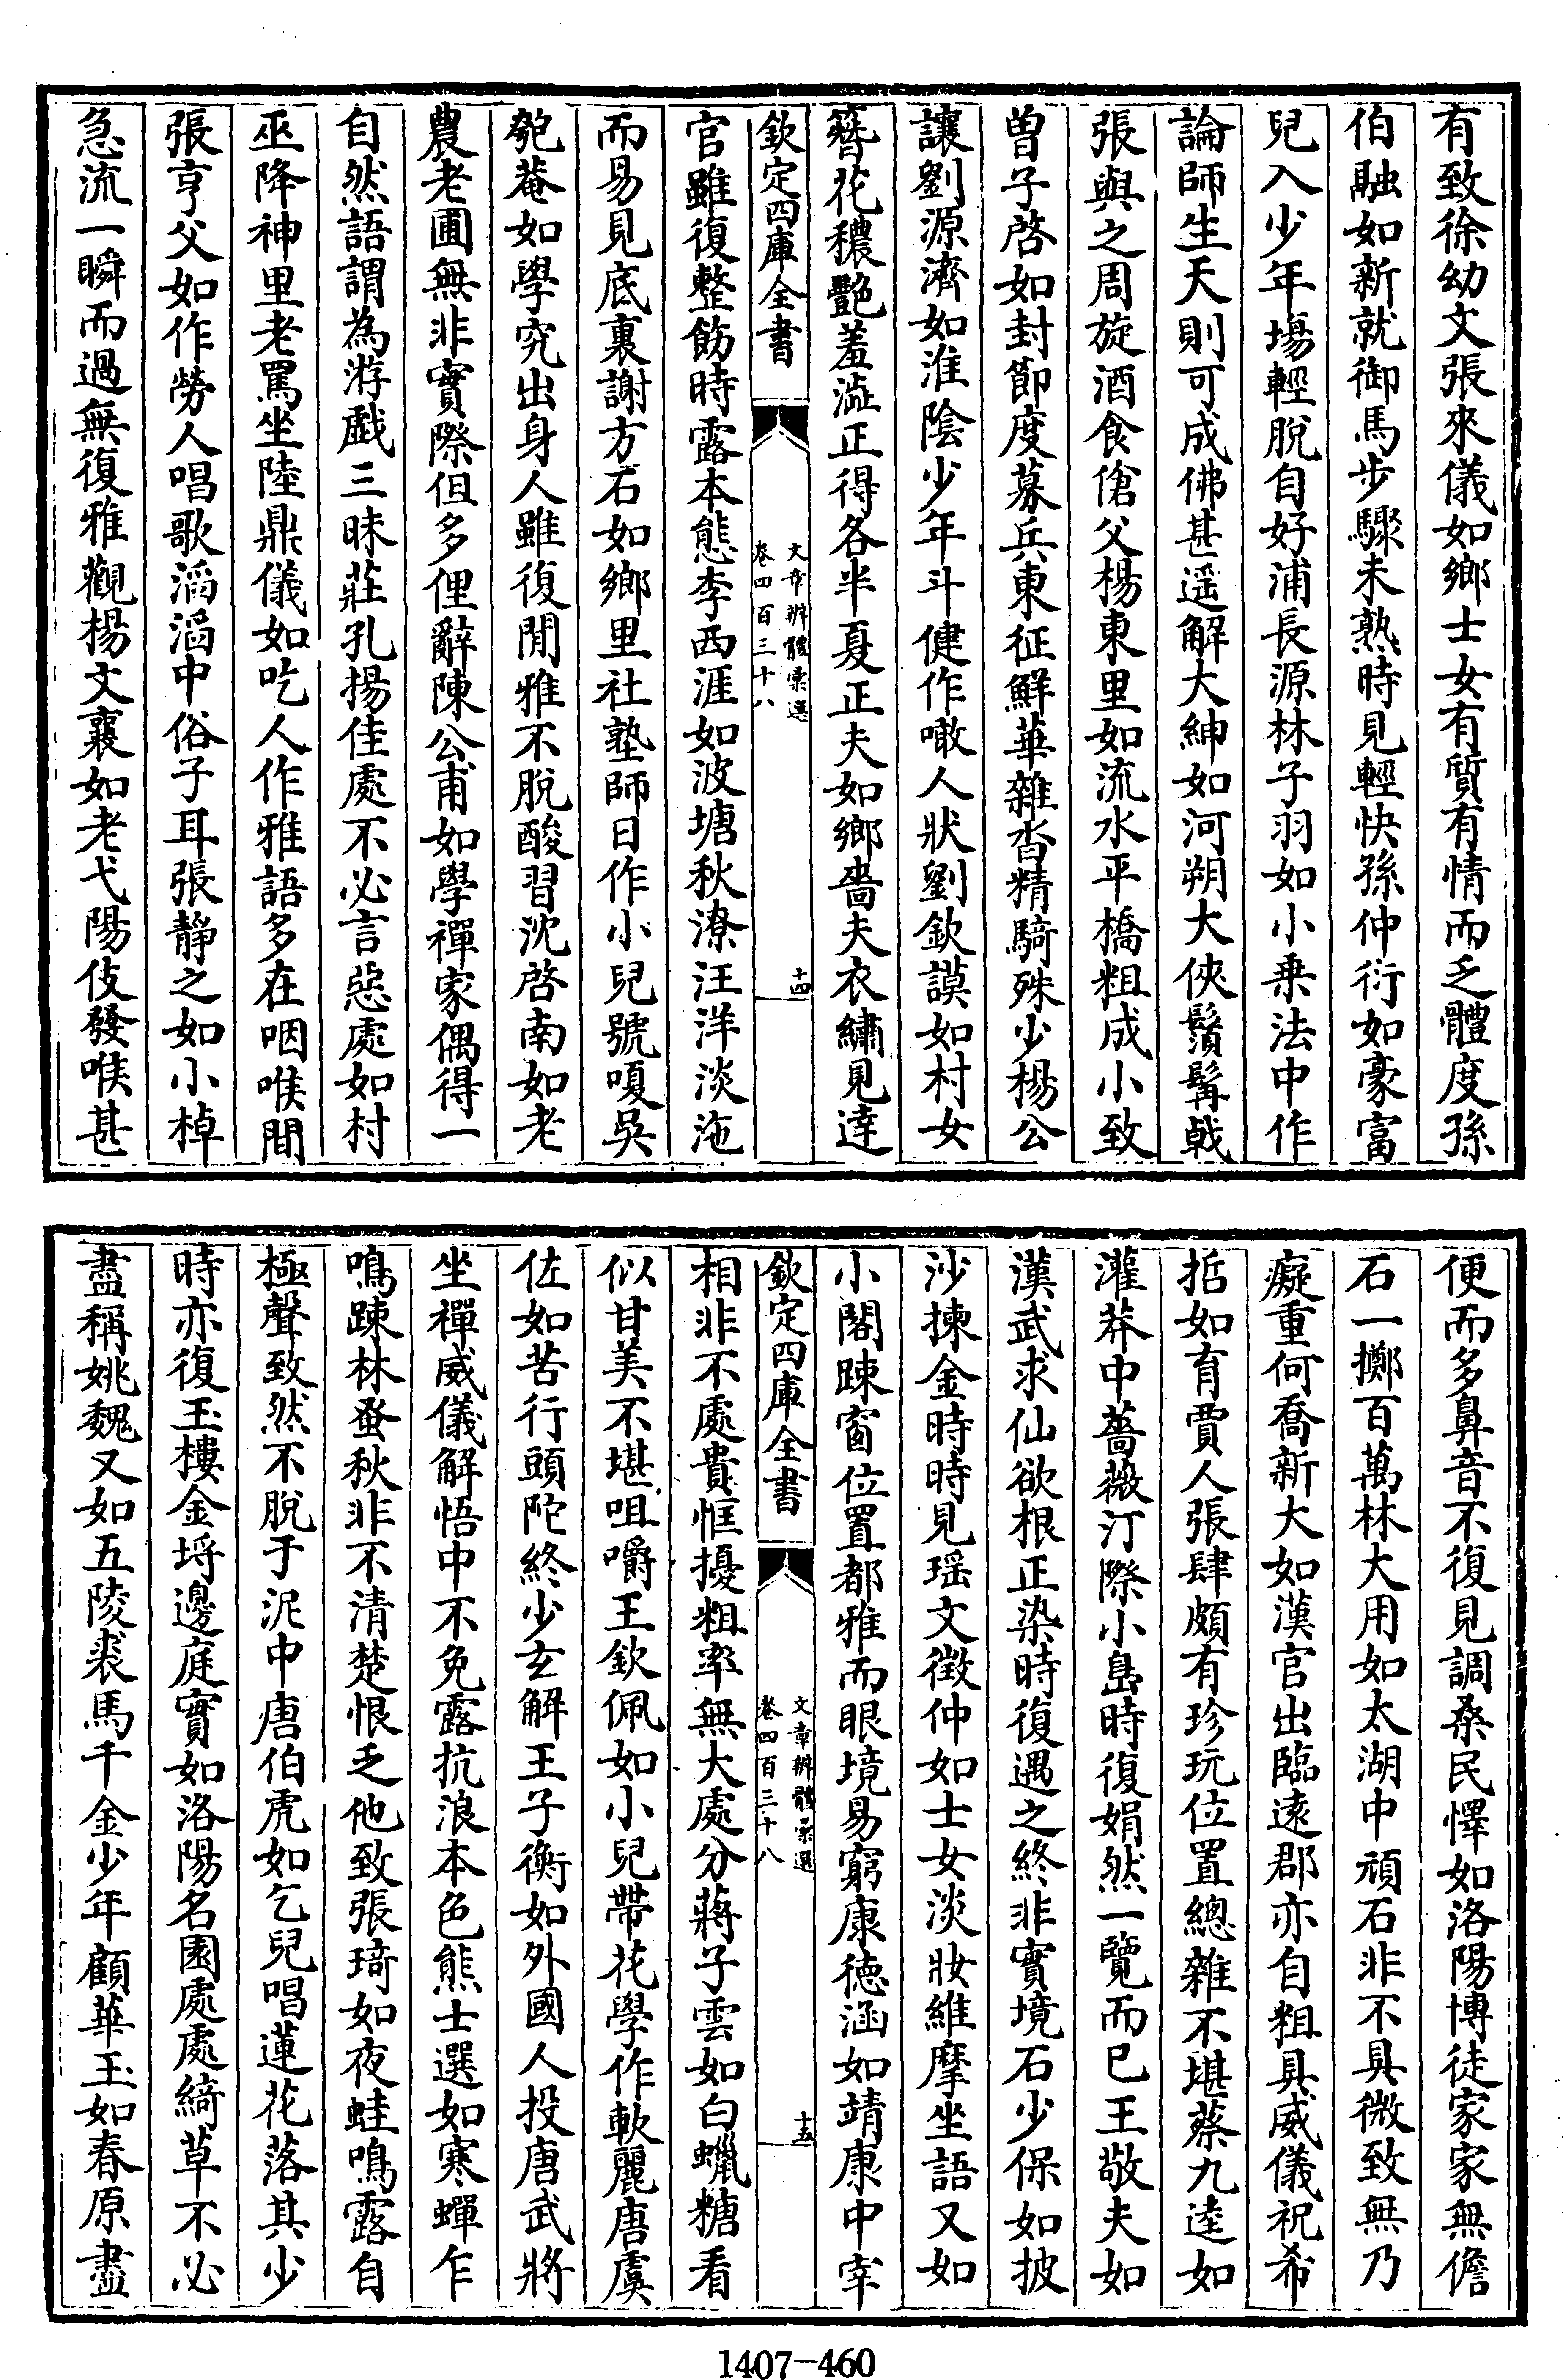 有致徐幼文張來儀如鄉士女有質有情而乏體度孫
伯融如新就御馬步驟未熟時見輕快孫仲衍如豪富
兒入少年場輕脫自好浦長源林子羽如小乘法中作
論師生天則可成佛甚遥解大紳如河朔大俠鬚髯戟
張與之周旋酒食傖父楊東里如流水平橋粗成小致
曽子啓如封節度募兵東征鮮華雜沓精騎殊少楊公
讓劉源濟如淮陰少年斗健作噉人狀劉欽謨如村女
簪花穠艷羞澁正得各半夏正夫如鄉嗇夫衣繡見逹
欽定四庫全書
文章辨體彙選
卷四百三十八
十四
官雖復整飭時露本態李西涯如波塘秋潦汪洋淡沲
而易見底裏謝方石如鄉里社塾師日作小兒號嗄吳
匏菴如學究出身人雖復閒雅不脫酸習沈啓南如老
農老圃無非實際但多俚辭陳公甫如學禪家偶得一
自然語謂為游戲三昧莊孔揚佳處不必言惡處如村
巫降神里老罵坐陸鼎儀如吃人作雅語多在咽喉間
張亨父如作勞人唱歌滔滔中俗子耳張靜之如小棹
急流一瞬而過無復雅觀楊文襄如老弋陽伎發喉甚
便而多鼻音不復見調桑民懌如洛陽博徒家家無儋
石一擲百萬林大用如太湖中頑石非不具微致無乃
癡重何喬新大如漢官出臨遠郡亦自粗具威儀祝希
哲如育賈人張肆頗有珍玩位置總雜不堪蔡九逵如
灌莽中薔薇汀際小島時復娟然一覽而已王敬夫如
漢武求仙欲根正染時復遇之終非實境石少保如披
沙揀金時時見瑶文徵仲如士女淡妝維摩坐語又如
小閣踈窗位置都雅而眼境易窮康德涵如靖康中宰
欽定四庫全書
文章辨體彙選
卷四百三十八
十五
相非不處貴恇擾粗率無大處分蔣子雲如白蠟糖看
似甘美不堪咀嚼王欽佩如小兒帶花學作軟麗唐虞
佐如苦行頭陀終少玄解王子衡如外國人投唐武將
坐禪威儀解悟中不免露抗浪本色熊士選如寒蟬乍
鳴踈林蚤秋非不清楚恨乏他致張琦如夜蛙鳴露自
極聲致然不脫于泥中唐伯虎如乞兒唱蓮花落其少
時亦復玉樓金埒邊庭實如洛陽名園處處綺草不必
盡稱姚魏又如五陵裘馬千金少年顧華玉如春原盡
1407-460